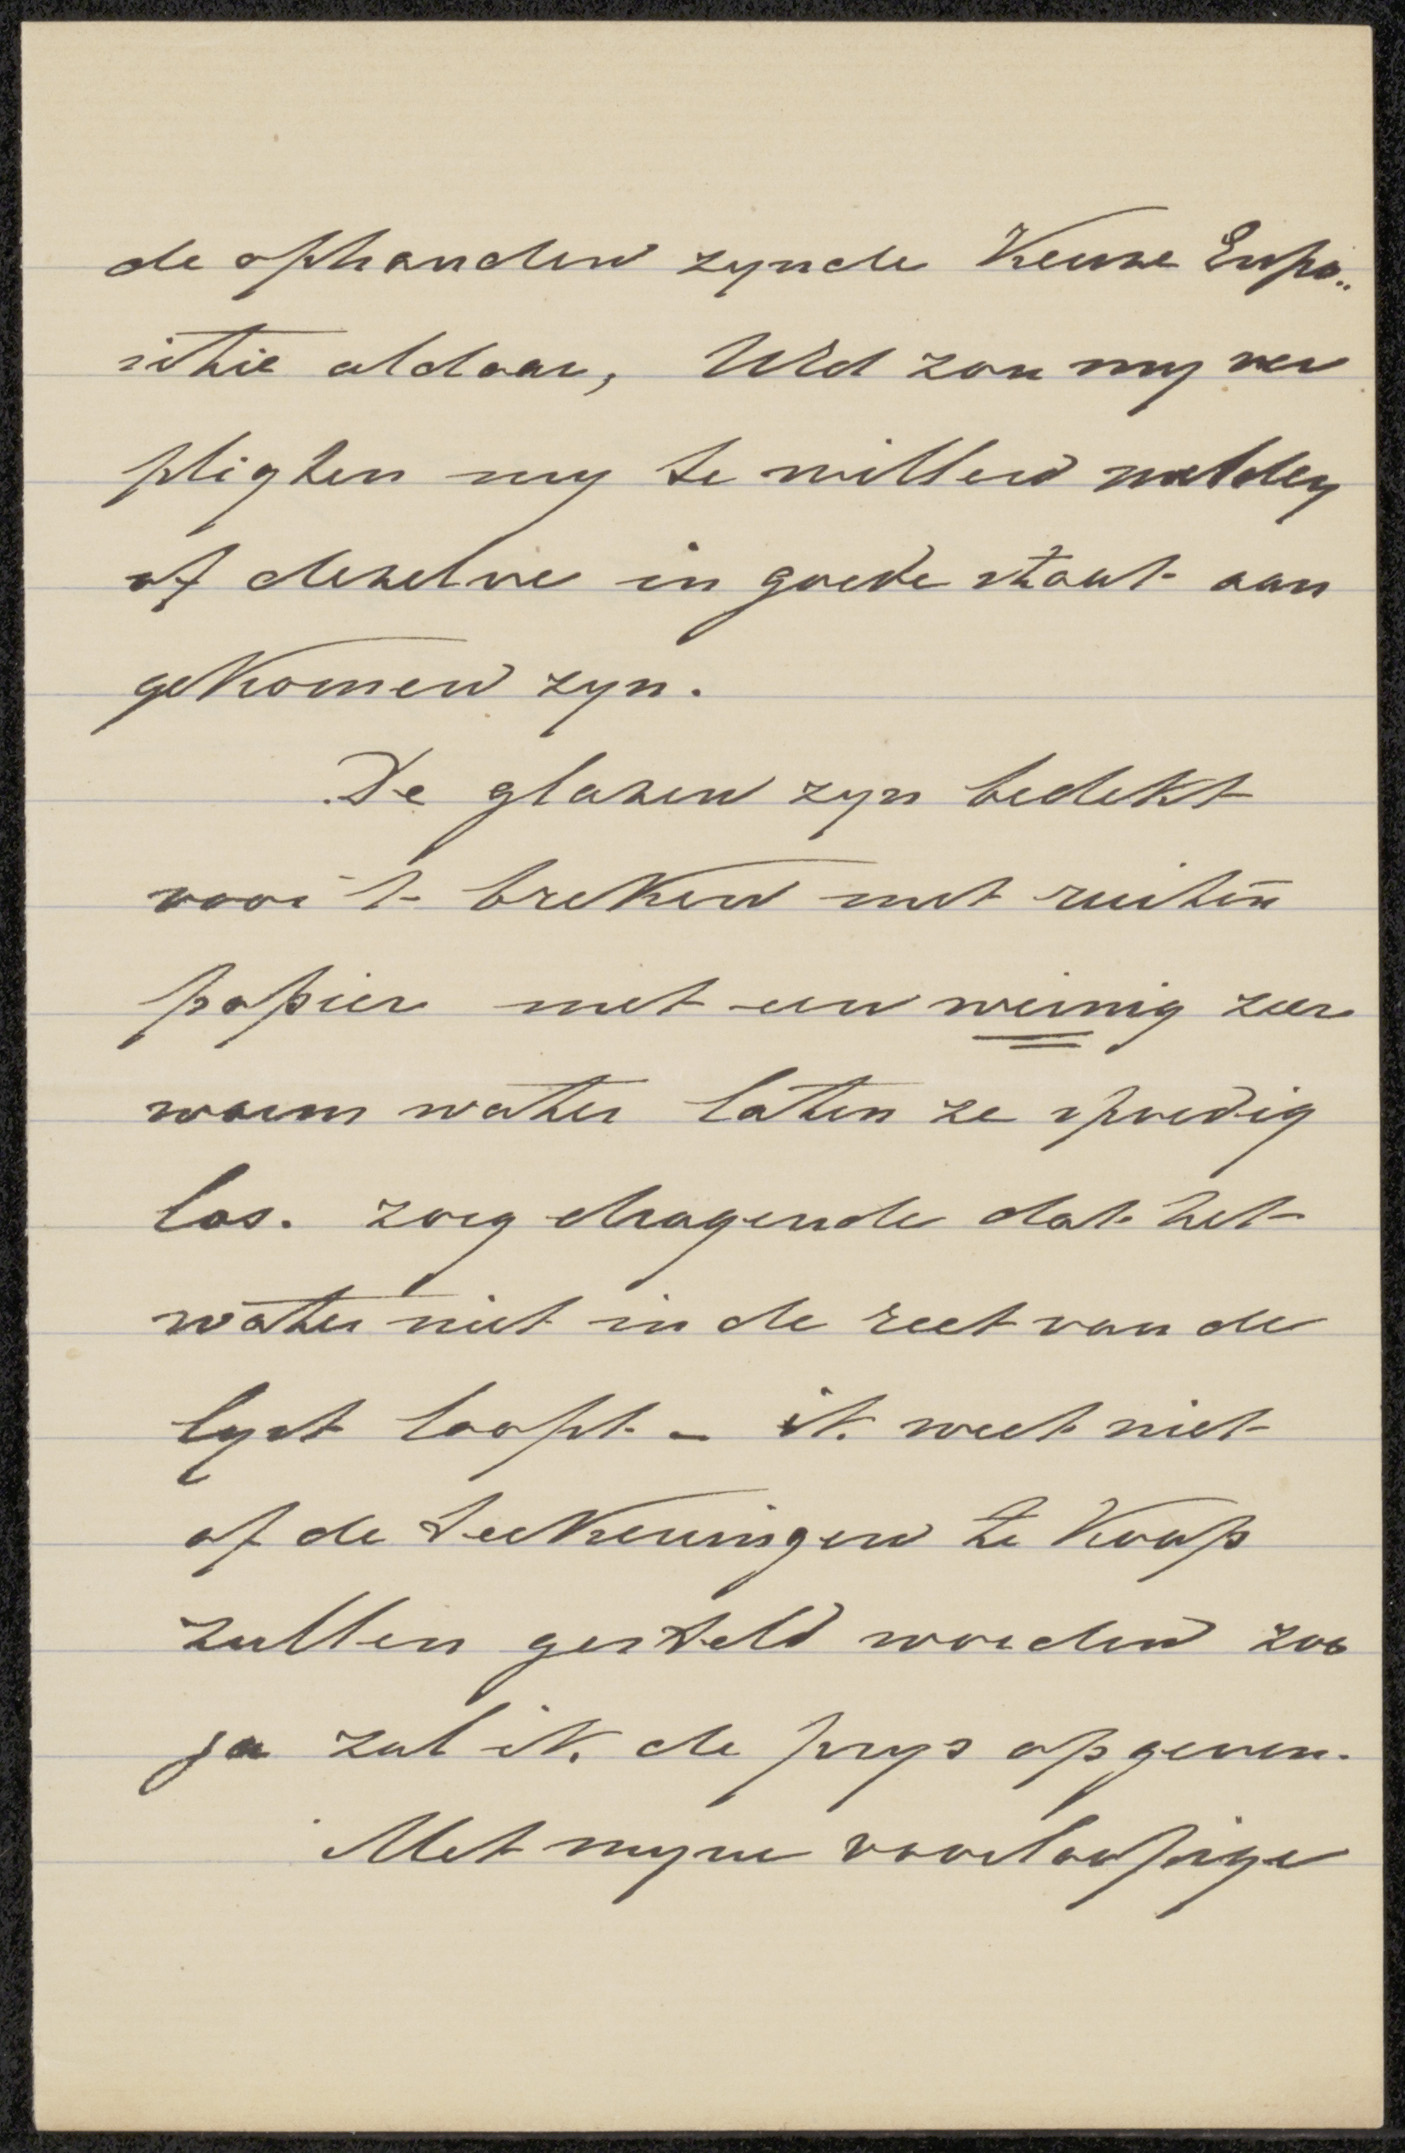 de ophanden zynde Keuze Expo„
sitie aldaar, UEd zou my ver
pligten my te willen melden
of dezelve in goede staat aan
gekomen zyn.
De glazen zyn bedekt
voor 't breken met ruiten
papier met een weinig zeer
warm water laten ze spoedig
los. zorg dragende dat het
water niet in de reet van de
lyst loopt – ik weet niet
of de teekeningen te koop
zullen gesteld worden zoo
ja zal ik de prys opgeven.
Met myne voorloopige